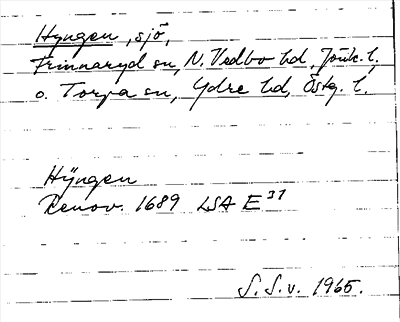 Hyngen, sjö,
Frinnaryd sn, N. Vedbo hd, Jönk. l,
o. Torpa sn, Ydre hd, Östg. l.
Hÿngen
Renov. 1689 LSA E 31
S.S.v. 1965.